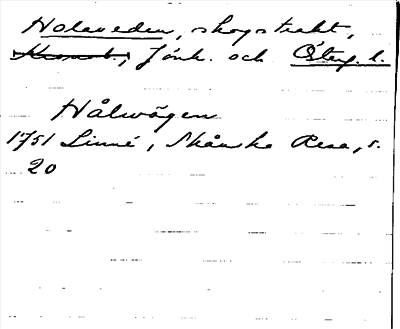 Holaveden, skogstrakt,
Kronob., Jönk. och Österg. l.
Hålwägen
1751 Linné, Skånska Resa, s.
20